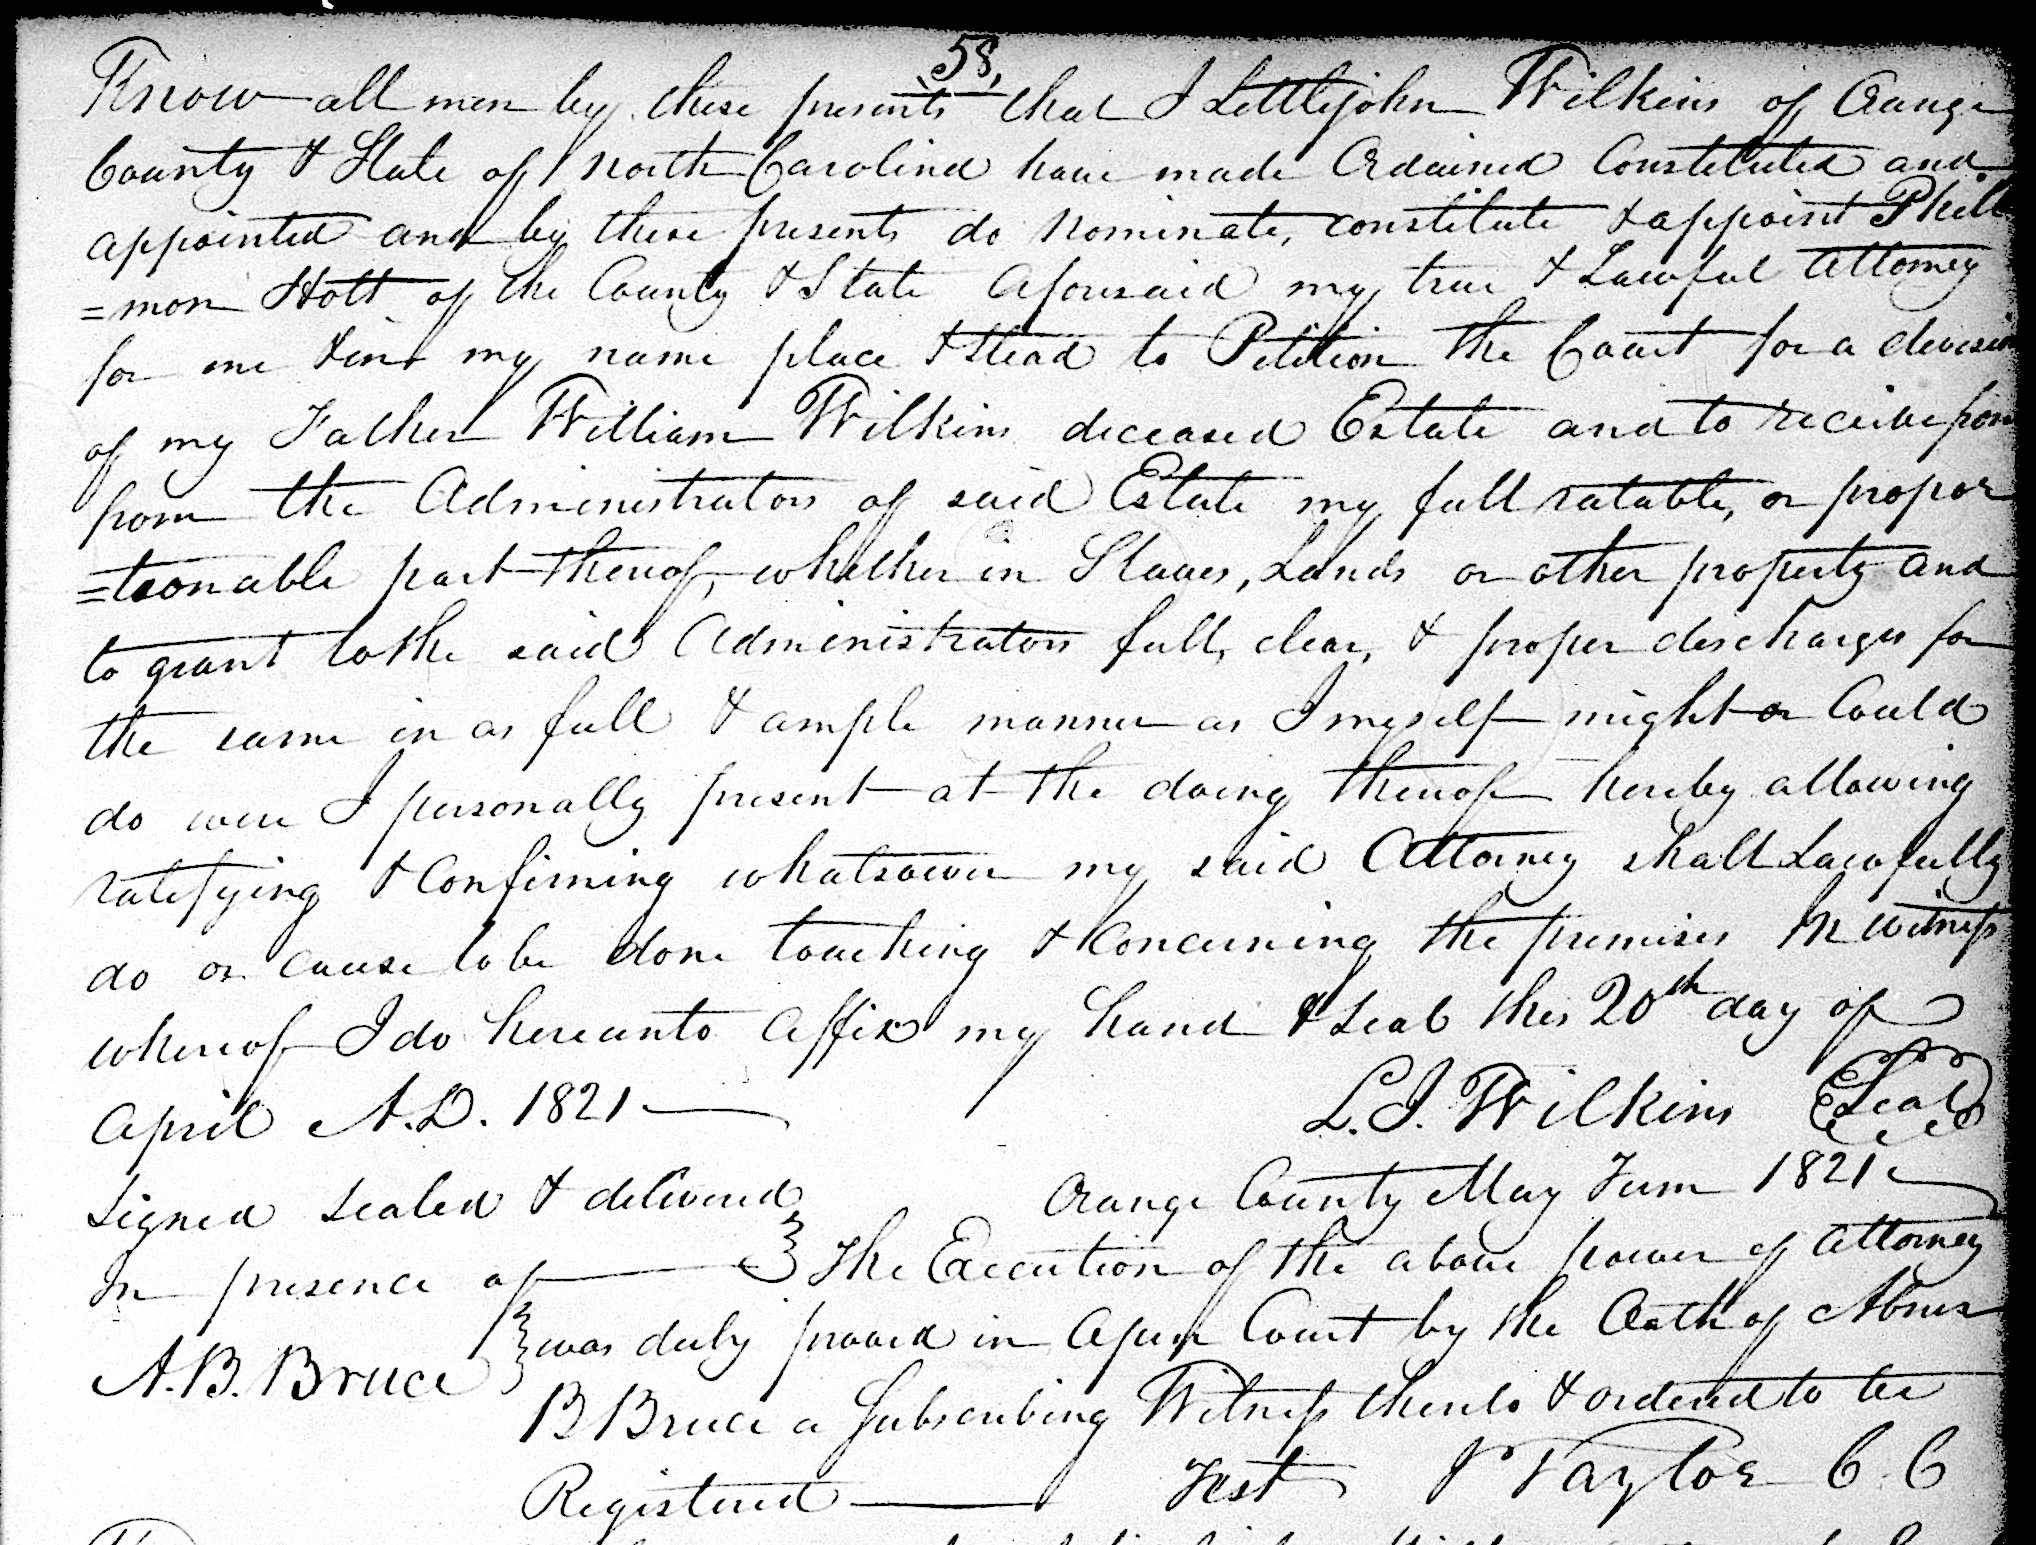 58,
Know all men by these presents that I Littlejohn Wilkins of Orange
County & State of North Carolina have made Ordained Constituted and
appointed and by these presents do nominate, constitute & appoint Phill
=mon Hott of the County & State Aforesaid my true & Lawful Attorney
for me & in my name place & stead to Petition the Court for a division
of my Father William Wilkins deceased Estate and to receive from
from the Administrators of said Estate my full ratable, or propor
=tionable part thereof, whether in Slaves, Lands or other property and
to grant to the said Administrators full, clear, & proper discharges for
the same in as full & ample manner as I myself might or Could
do were I personally present at the doing thereof hereby allowing
ratifying & Confirming whatsoever my said Attorney shall Lawfully
do or cause to be done touching & Concerning the premises In witness
whereof I do hereunto affix my hand & Seal this 20th day of
April A.D. 1821
L. J. Wilkins Seal
Signed Sealed & delivered
In presence of
A. B. Bruce
Orange County May Term 1821
The Execution of the above power of Attorney
was duly proved in Open Court by the Oath of Abner
B Bruce a Subscribing Witness thereto & ordered to be
Registered Test J Taylor C. C